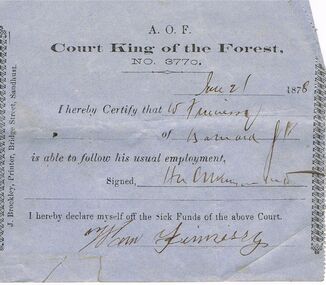 A. O. F.
Court King of the Forest,
NO. 3770.
June 21 1878
I hereby Certify that W Finnessy
of Barnard St
is able to follow his usual employment,
Signed,
I hereby declare myself off the Sick Funds of the above Court.
Wm Finnessy
J. Brockley, Printer, Bridge Street, Sandhurst.